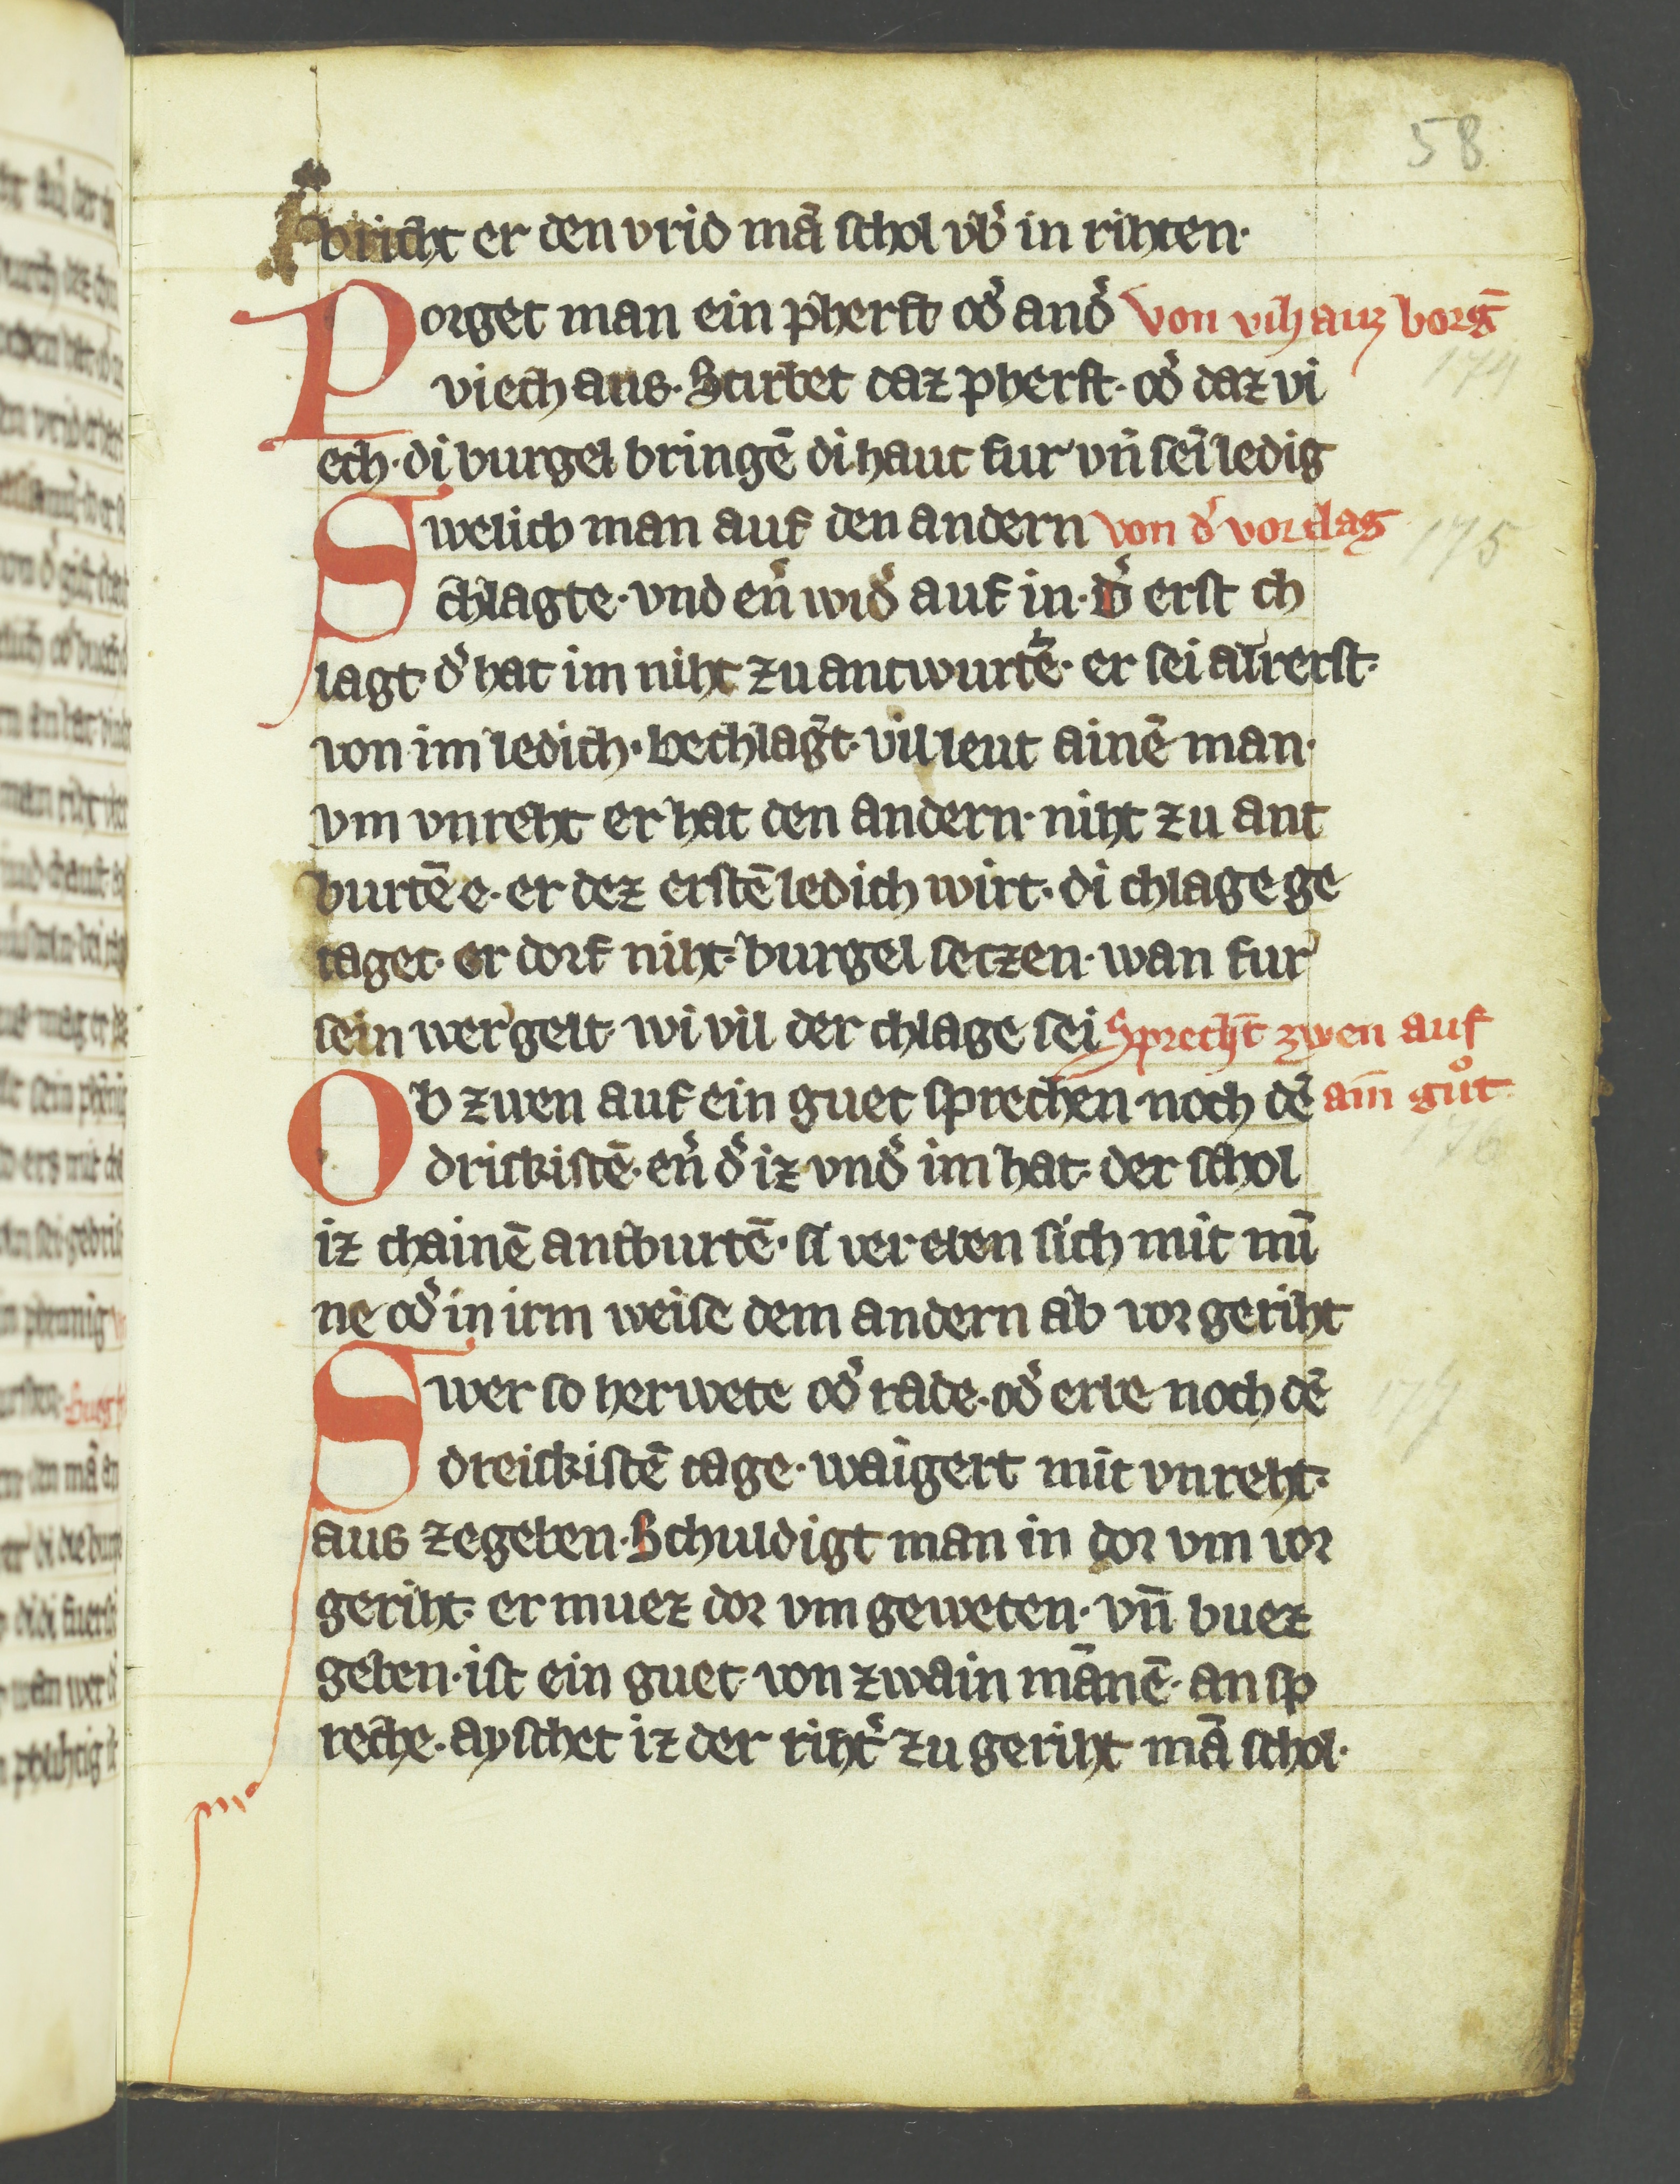 58
bricht er den vrid mā schol vb̾ in rihten·
Porget man ein pherft od̾ and̾ Von vih auz borgē
174
viech aus· Stirbet daz pherft· od̾ daz vi
ech· di burgel bringē di haut fur vn̄ sei ledig
Swelich man auf den andern von d̾ vor clag
175
chlagte· vnd en̾ wid̾ auf in· d̾ erst ch
lagt d̾ hat im niht zu antwurtē· er sei alrerst·
von im ledich· bechlagt· vil leut ainē man·
vm vnreht er hat den andern· niht zu ant
burtē e· er dez erstē ledich wirt· di chlage ge
taget· er dorf niht· burgel setzen· wan fur
sein wergelt· wi vil der chlage sei Sprechēt zwen auf
Ob zuen auf ein guet sprechen noch dē aim guͦt
176
drickistē· en̾ d̾ iz vnd̾ im hat· der schol
iz chainē antburtē· si vereben sich mit mī
ne od̾ in irm weise dem andern ab vor geriht
Swer so herwete od̾ rade· od̾ erbe noch dē
177
dreickistē tage· waigert mit vnreht·
aus zegeben· Schuldigt man in dor vm vor
geriht· er muez dor vm geweten· vn̄ buez
geben· ist ein guet von zwain mānē· an sp
reche· ayschet iz der riht̾ zu geriht mā schol·